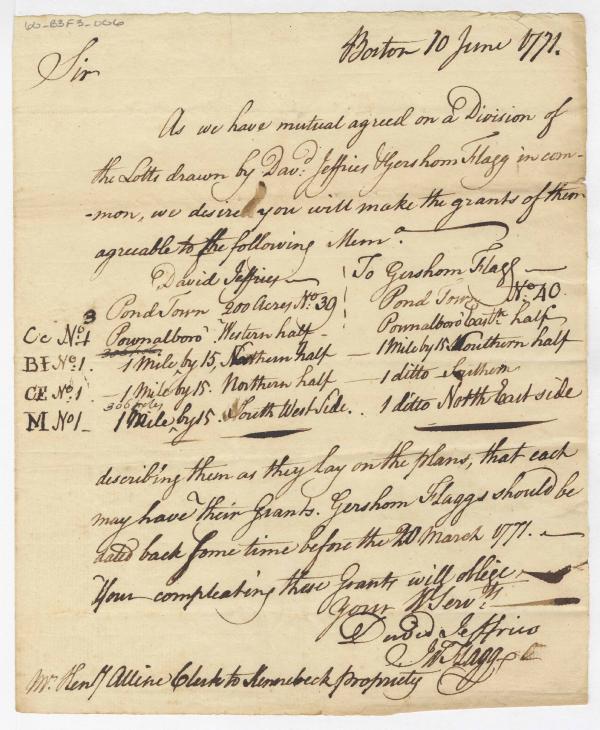 60-B3F3-006
Boston 10 June 1771.
Sir
As we have mutual agreed on a Division of
the Lotts drawn by Davd. Jeffries & Gershom Flagg in com-
-mon, we desire you will make the grants of them
agreeable to the following Mema.
David Jeffries To Gershom Flagg
Pond Town 200 Acres No. 39 Pond Town No. 40
3
Cc No. 1 Pownalboro Western half Pownalboro Eastn. half
BF No. 1. 1 Mile by 15, Northern half 1 Mile by 15 Southern half
CE No. 1 1 Mile by 15. Northern half 1 ditto Southern
M No 1 1 Mile by 15. South West Side. 1 ditto North East side
describing them as they lay on the plans, that each
may have their Grants. Gershom Flaggs should be
dated back some time before the 20 March 1771.
Your compleating these Grants will oblige
Your Servts
David Jeffries
Flagg
Mr. Henry Alline Clerk to Kennebeck propriety